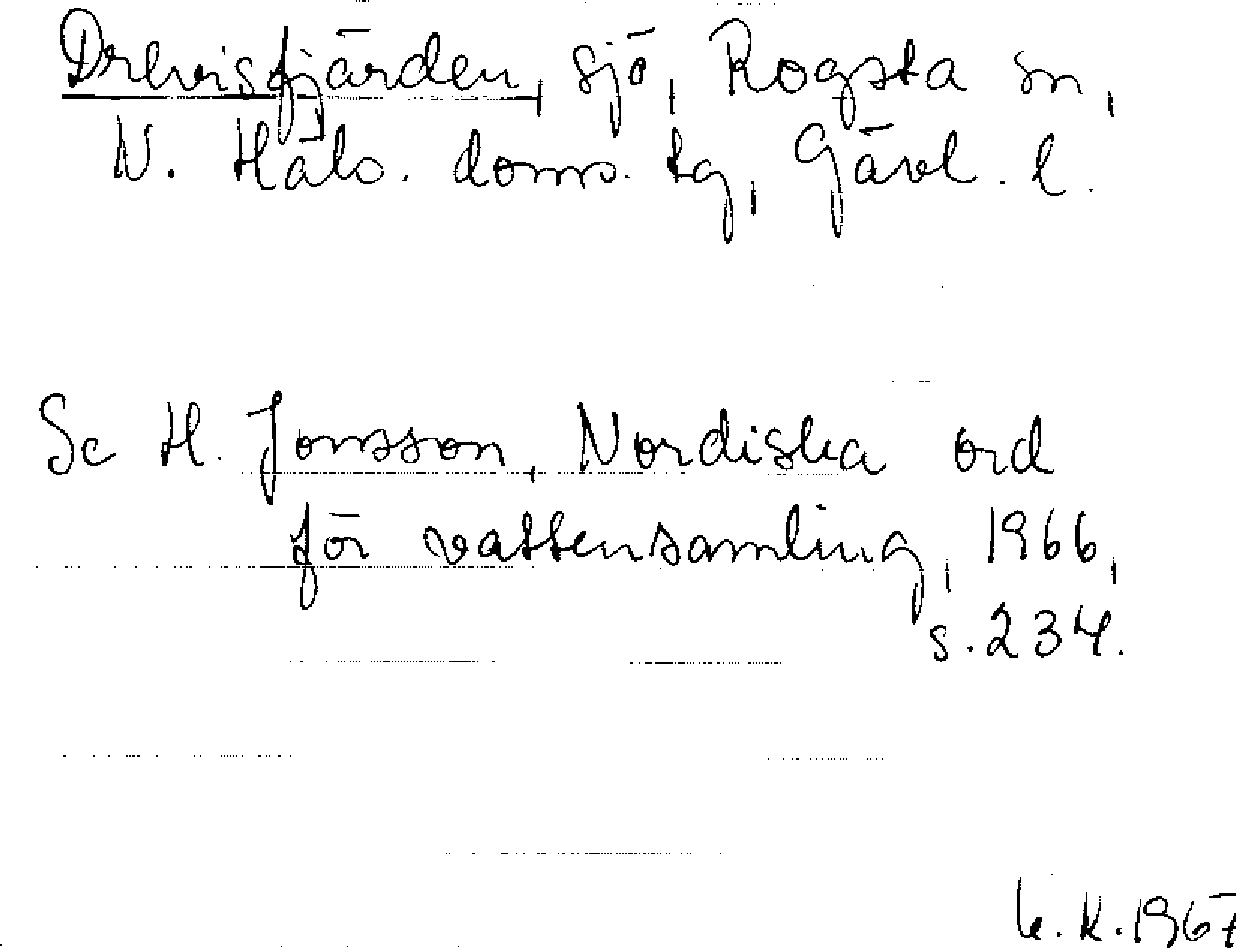 Drevisfjärden, sjö, Rogsta sn,
N. Häls. doms. tg, Gävl. l.
Se H. Jonsson, Nordiska ord
för vattensamling, 1966,
s. 234.
K. 1967